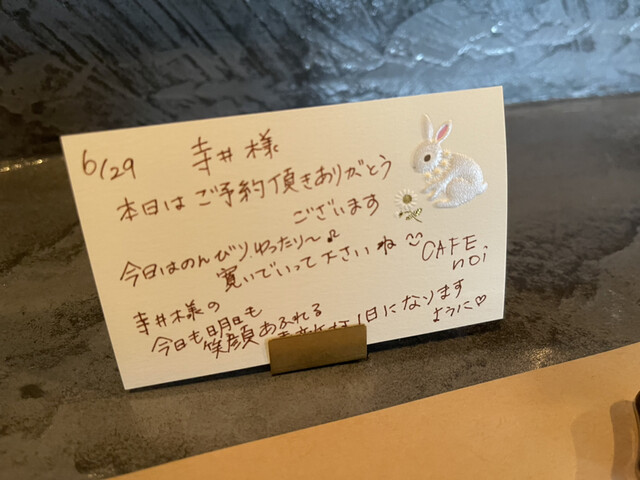 6/29 寺井様
本日はご予約頂きありがとう
ございます
今日はのんびり、ゆったり〜♫
寛いでいって下さいね
CAFE
noi
寺井様の
今日も明日も
笑顔あふれる 1日になります
ように♡